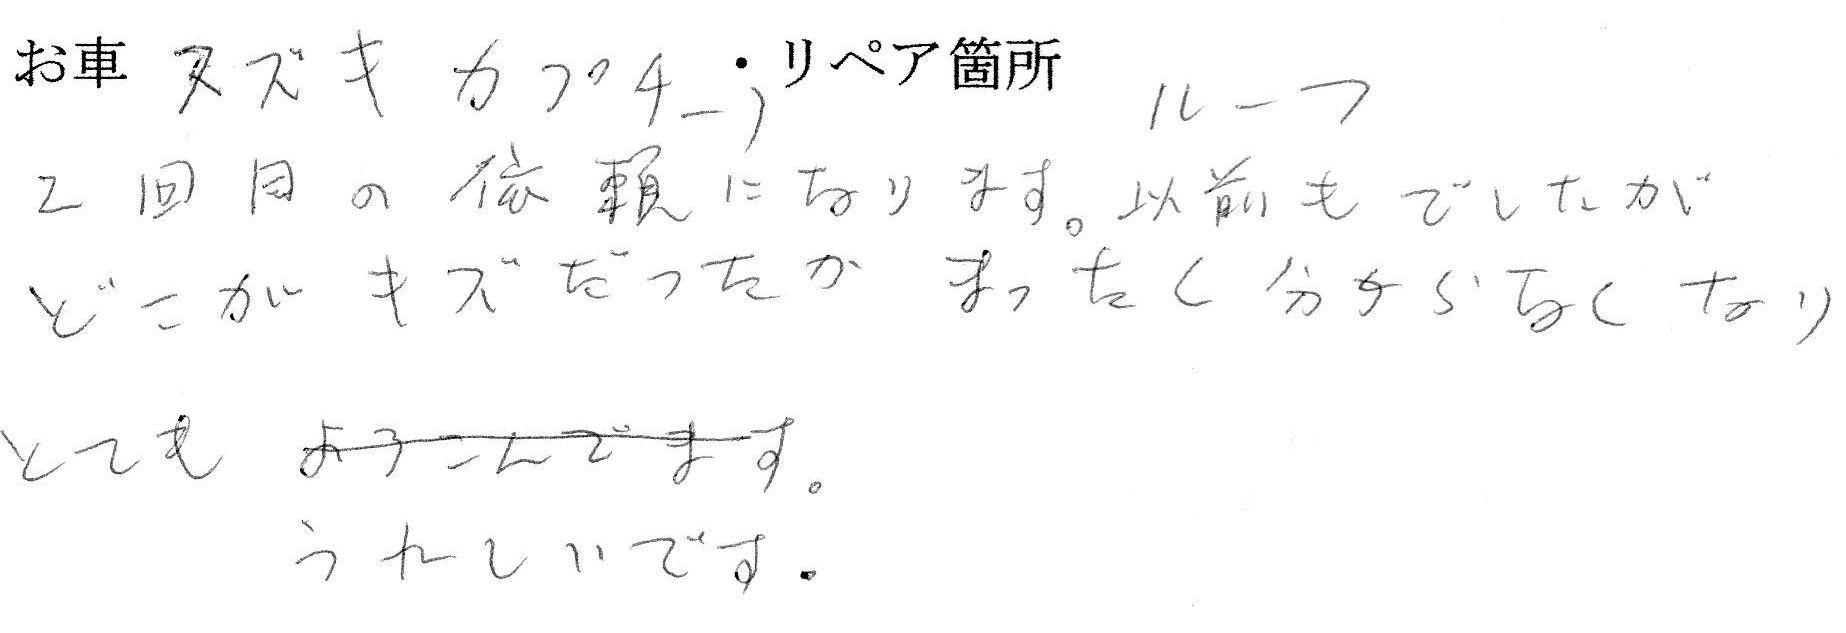 お車 スズキ カプチーノ ・リペア箇所 ルーフ
2回目の依頼になります。以前もでしたが
どこがキズだったか まったく分からなくなり
とても よろこんでます。
うれしいです.